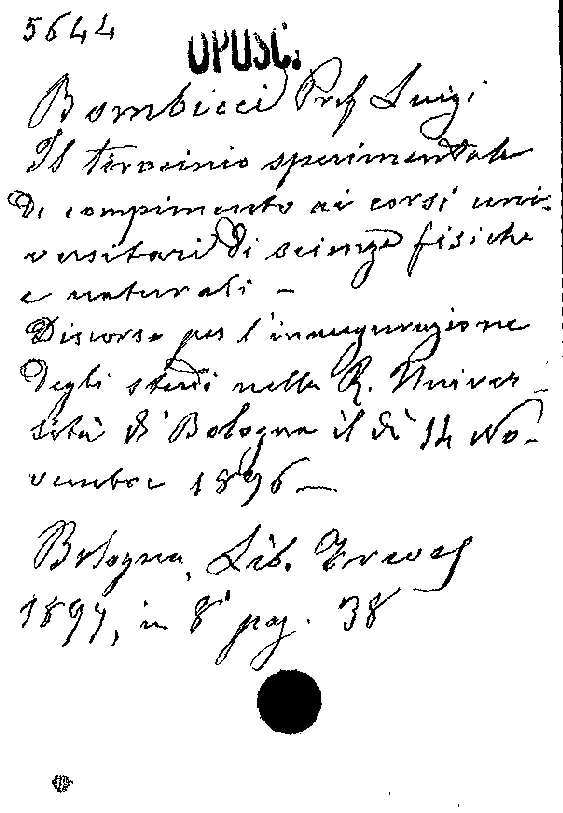 5644
OPUSC.
Bombicci Prof Luigi
Il tirocinio sperimentale
di compimento ai corsi uni-
versitari di scienze fisiche
e naturali -
Discorso per l'inaugurazione
degli studi nella R. Univer-
sità di Bologna il dì 14 No-
vembre 1896 -
Bologna, Lib. Treves
1897, in 8° pag. 38